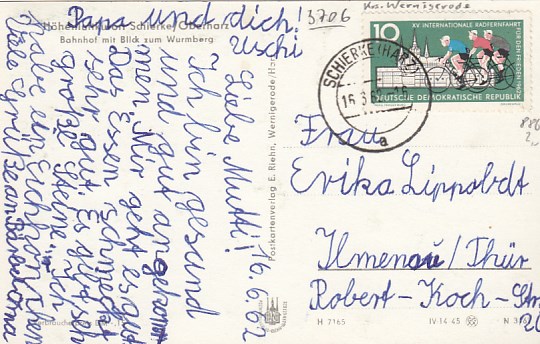 Höhenluftkurort Schierke / Oberharz
Bahnhof mit Blick zum Wurmberg
16.6.62
Liebe Mutti!
Ich bin gesund
und gut angekom-
men. Mir geht es gut.
Das Essen schmeckt
sehr gut. Es gibt sehr
große Steine. Ich
habe ein Eichhörnchen
Viele Grüße an
Papa und dich!
Uschi
Postkartenverlag E. Riehn, Wernigerode/Harz
3706
Kr. Wernigerode
10
XV. INTERNATIONALE RADFERNFAHRT
FÜR DEN FRIEDEN 1962
DEUTSCHE DEMOKRATISCHE REPUBLIK
SCHIERKE (HARZ)
a
Frau
Erika Lippoldt
Ilmenau/Thür
Robert-Koch-Str
H 7165
IV-14-45